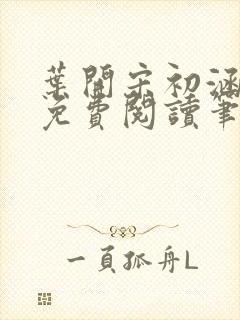 葉開宋初涵
免費閱讀筆
一頁孤舟L